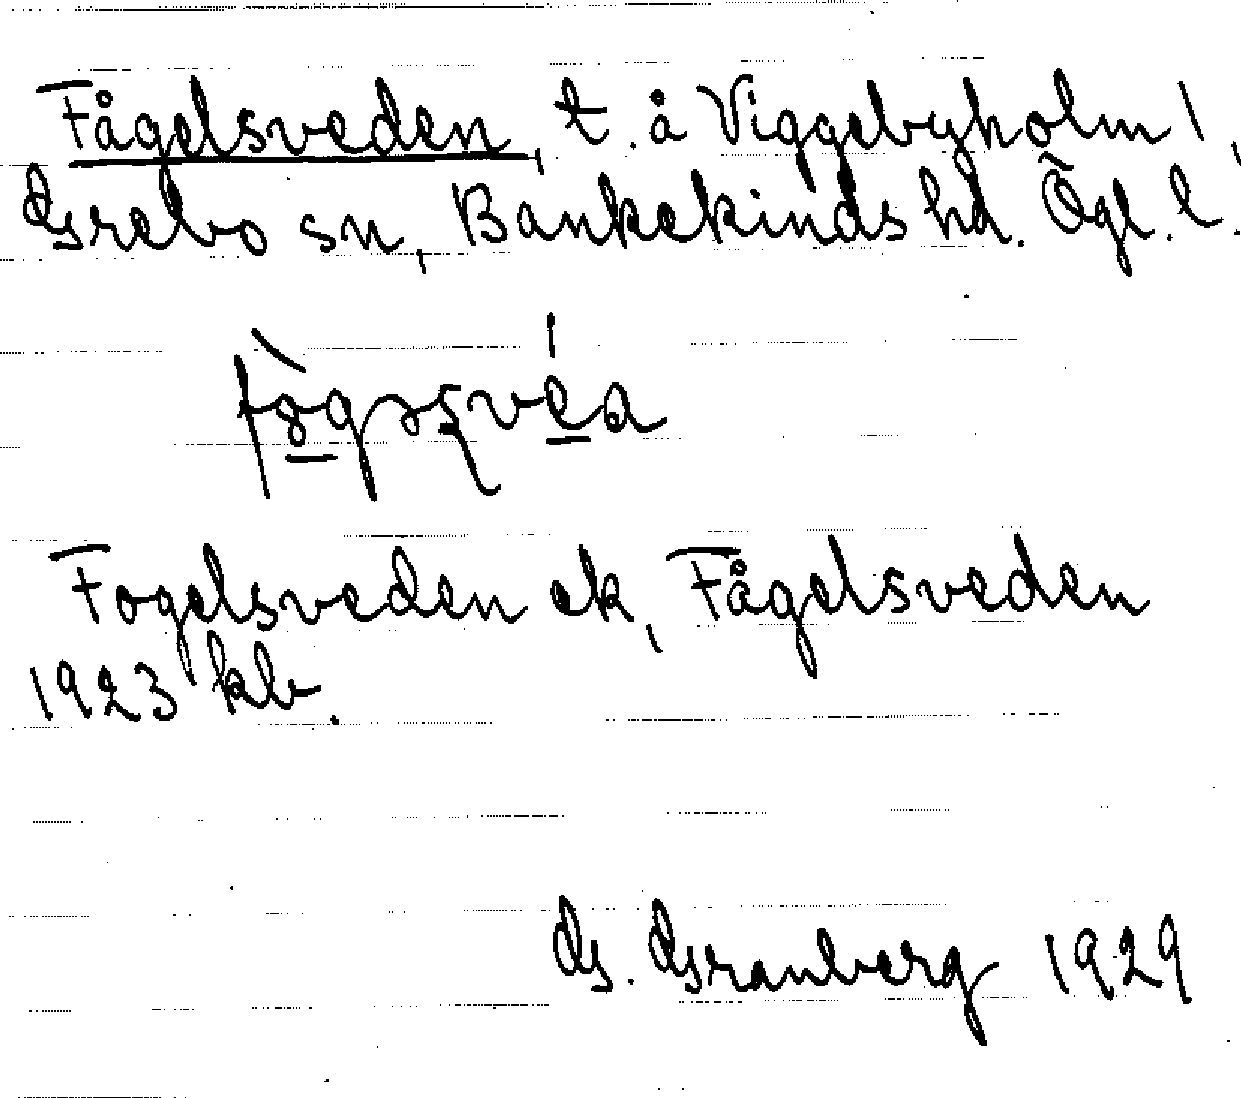 Fågelsveden, t. å Viggebyholm 1,
Grebo sn, Bankekinds hd. Ögl. l.
Fogelsveden ek, Fågelsveden
1923 kb.
G. Granberg 1929